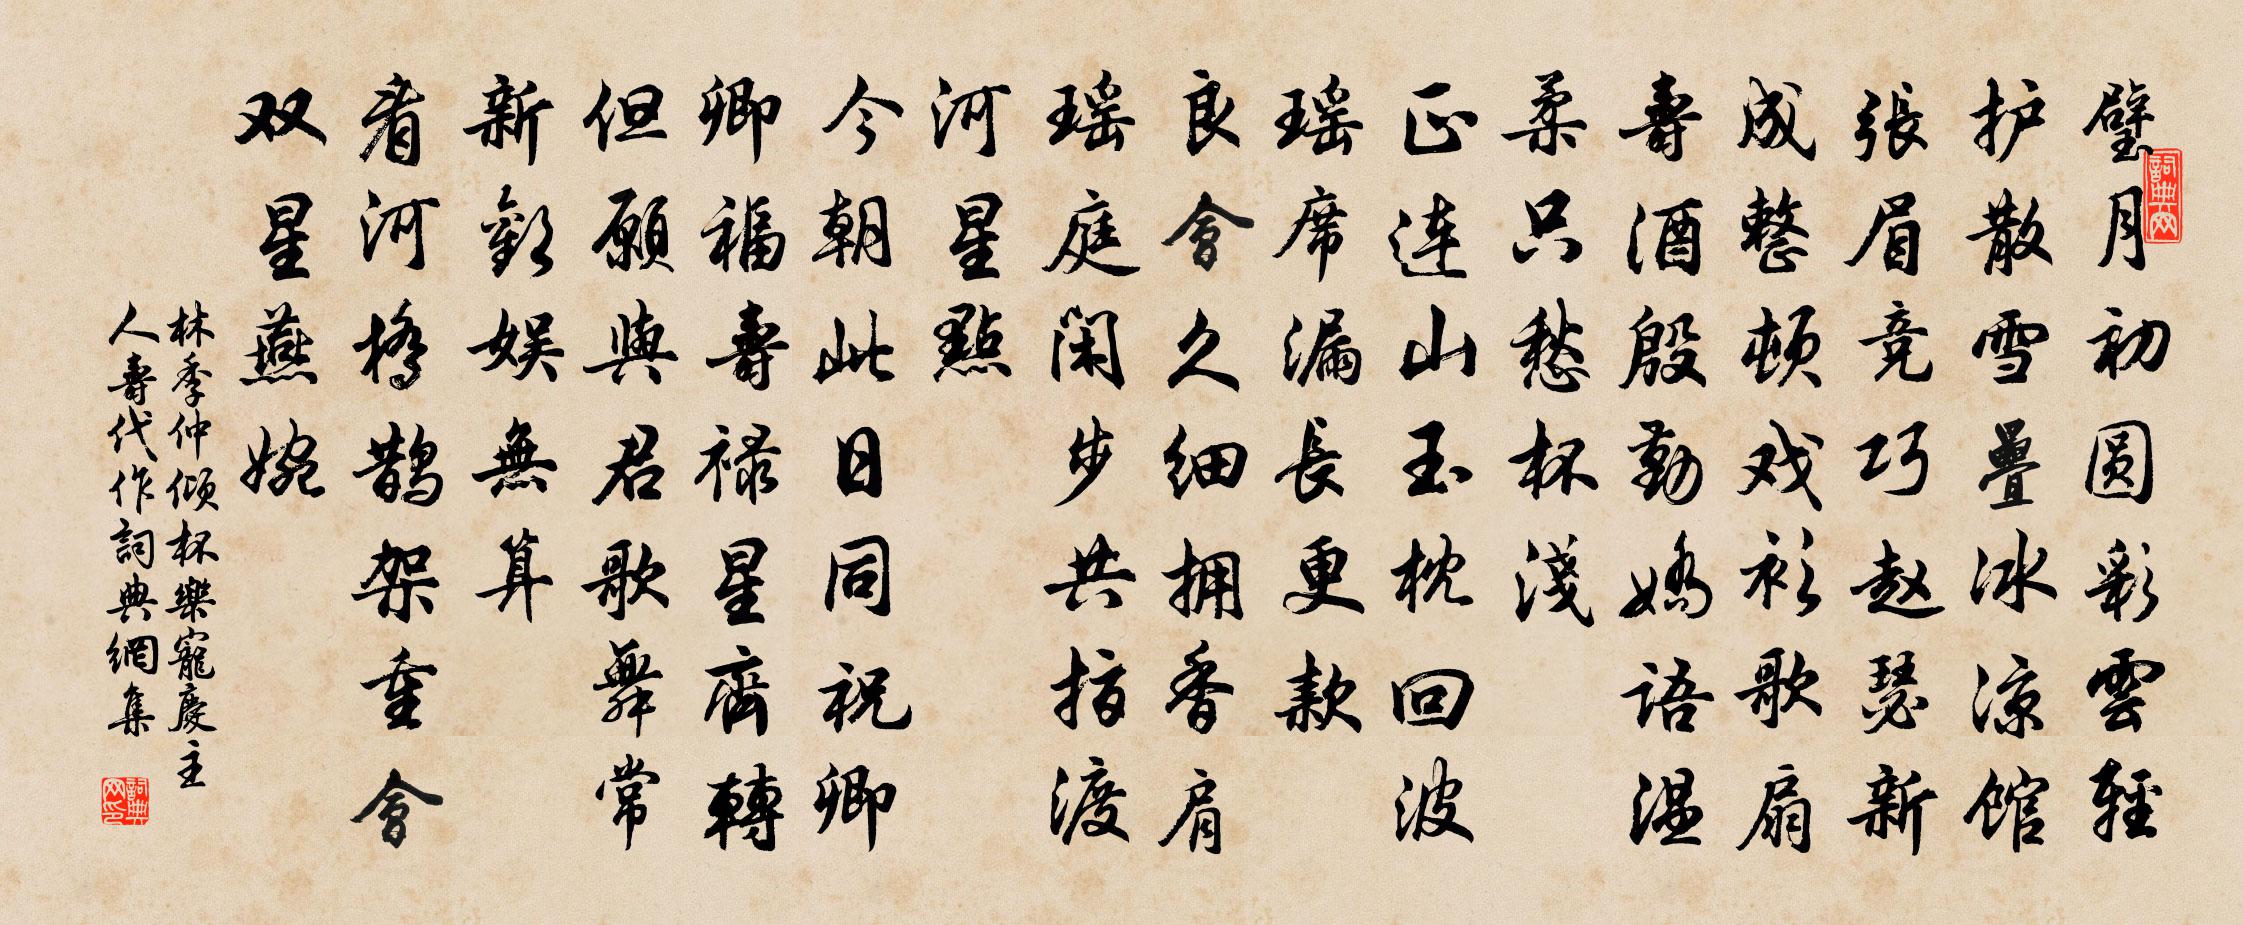 璧月初圆彩雲輕
护散雪疊冰凉馆
張眉竞巧赵瑟新
成整顿戏衫歌扇
壽酒殷勤嬌语温
柔只愁杯淺
正连山玉枕回波
瑶席漏長更款
良會久细拥香肩
瑶庭闲步共指渡
河星點
今朝此日同祝卿
卿福壽禄星齊轉
但願與君歌舞常
新歡娱無算
看河橋鹊架重會
双星燕婉
林季仲倾杯樂寵慶主
人壽代作詞典網集
詞典网
詞典网印